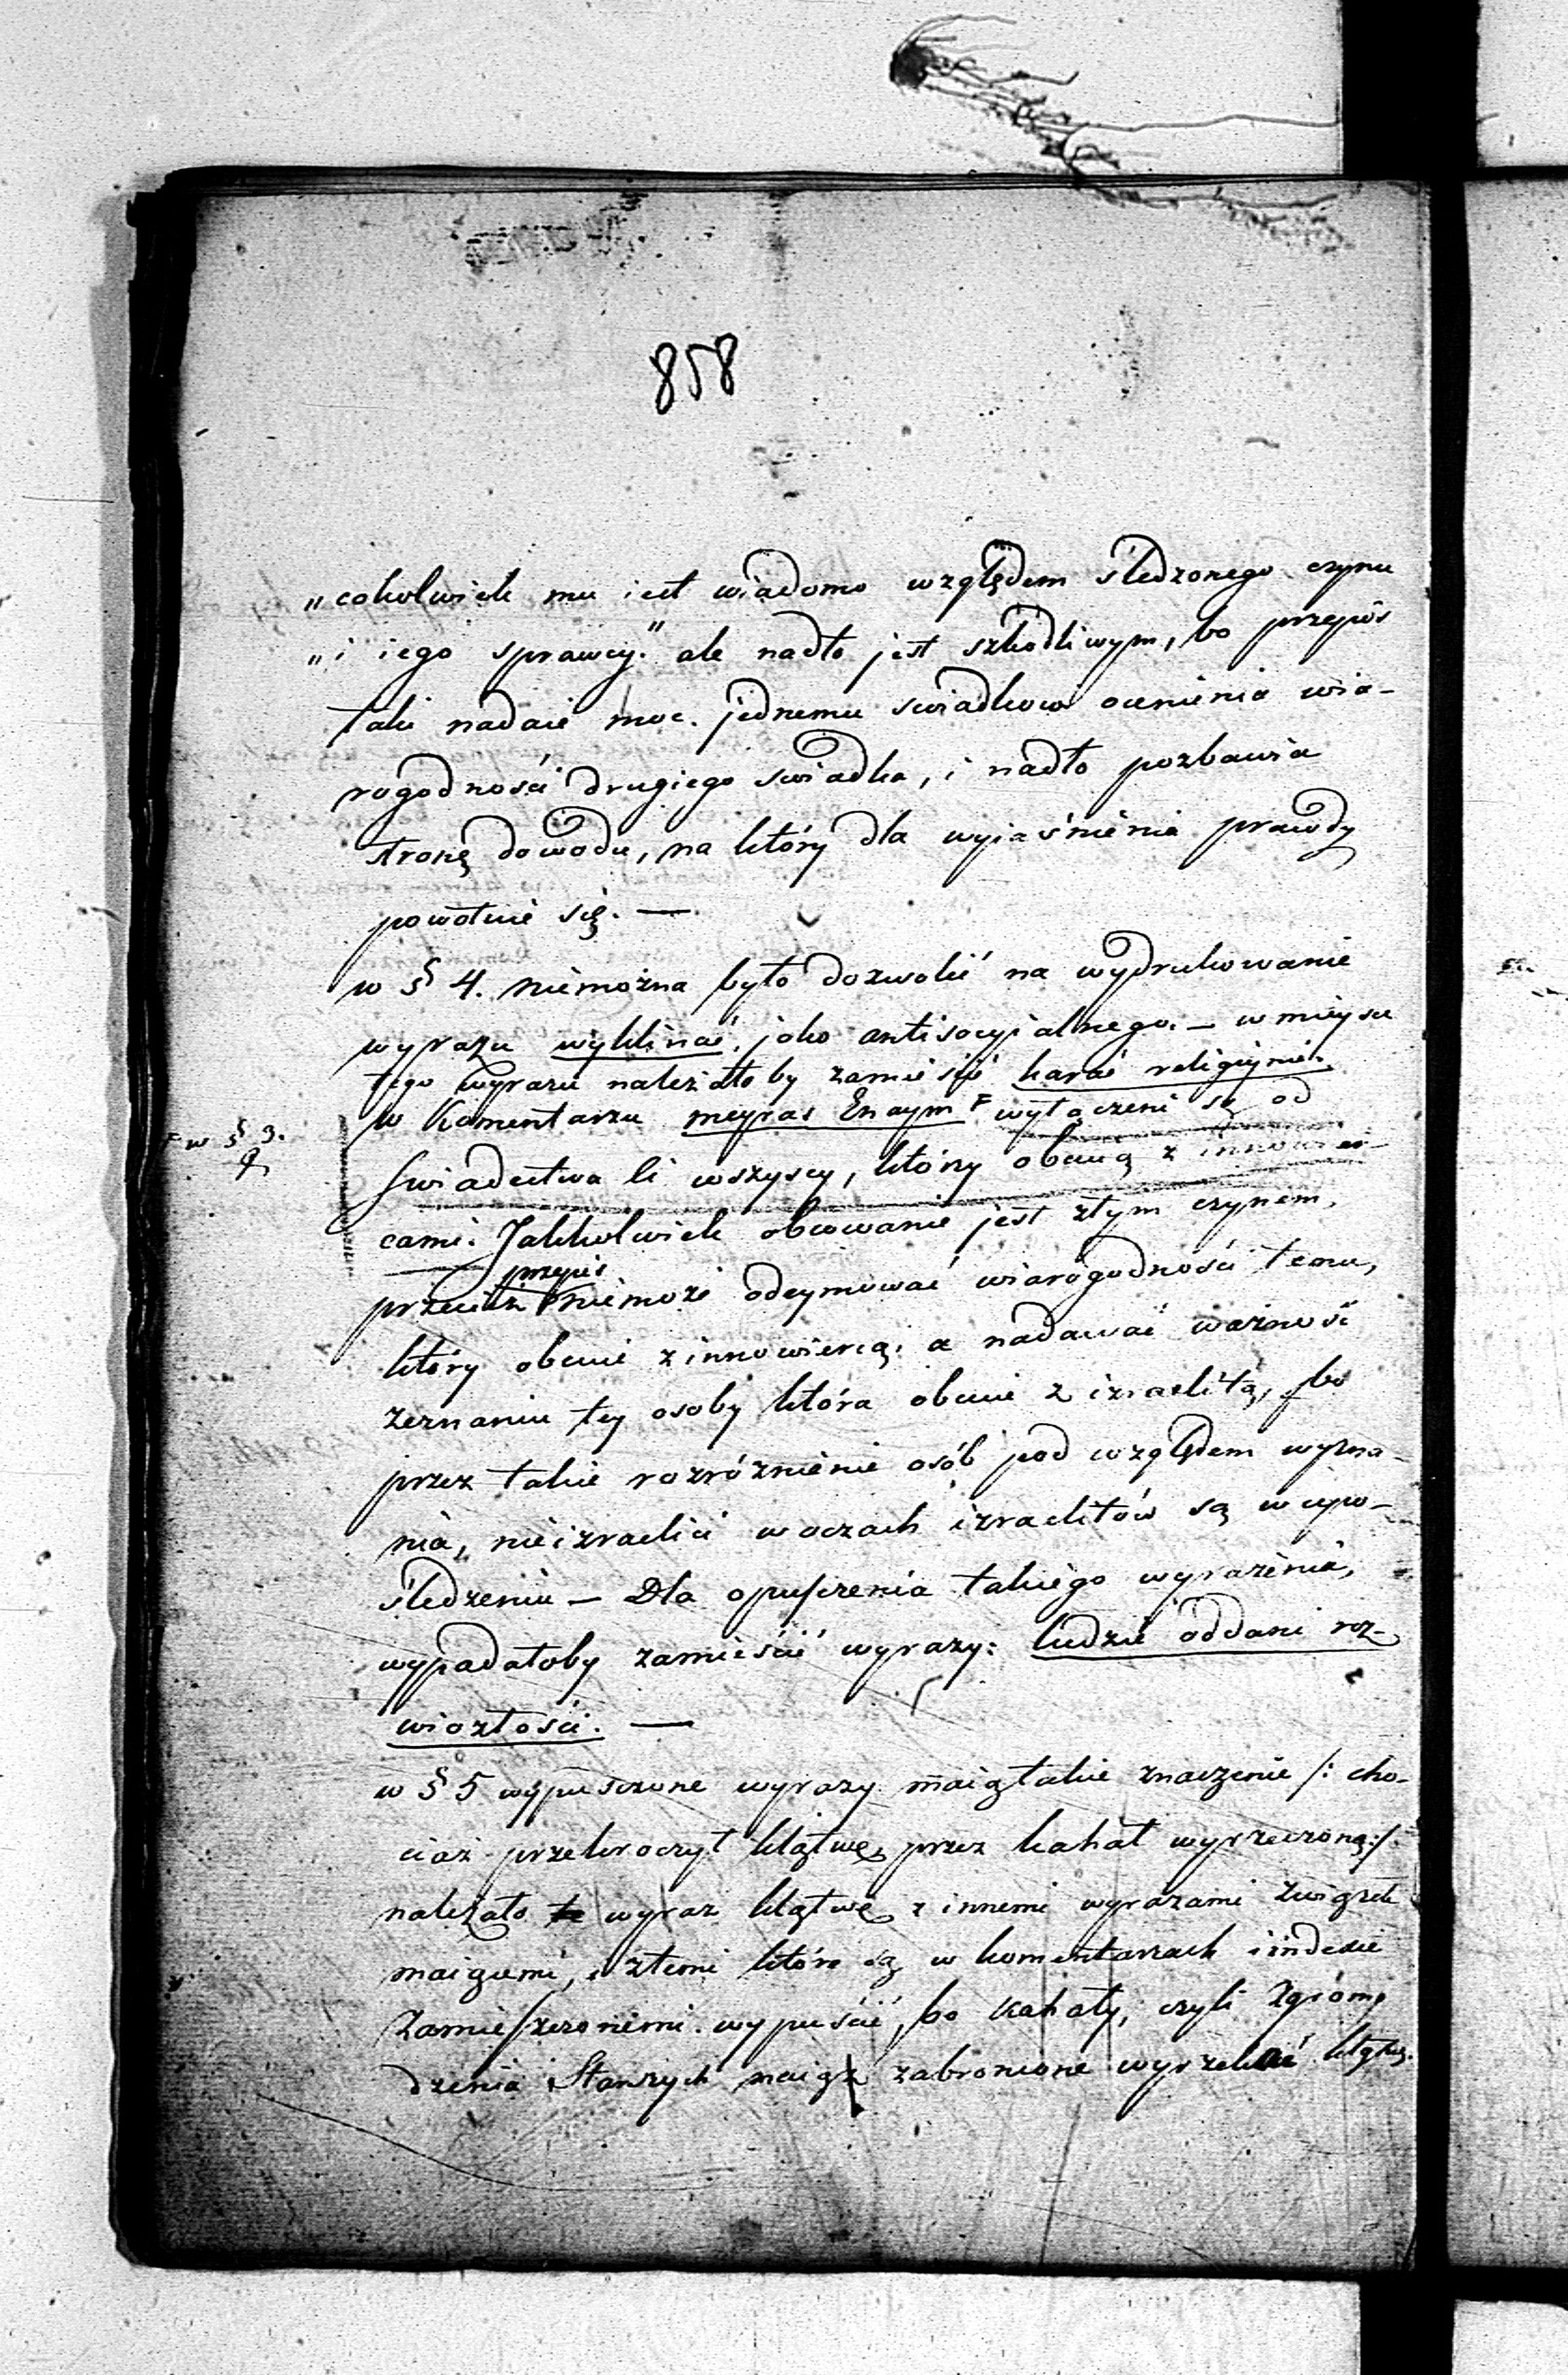 858
„cokolwiek mu iest wiadomo względem śledzonego czynu
„i iego sprawcy." ale nadto jest szkodliwym, bo przepis
taki nadaie moc jednemu swiadkowi ocenienia wia-
rogodności drugiego swiadka, i nadto pozbawia
stronę dowodu, na który dla wyjaśnienia prawdy
powołuie się. —
w § 4. niemożna było dozwolić na wydrukowanie
wyrazu wyklinać, jako antisocyialnego. — w mieyscu
tego wyrazu należałoby zamieścić karać religiynie.
w Komentarzu meyras Enaym F wyłączeni są od
F w § 3.
świadectwa li wszyscy, którzy obcuią z innowier-
cami. Jakkolwiek obcowanie jest złym czynem,
przepis
przecież niemoże odeymować wiarogodności temu,
który obcuie z innowiercą, a nadawać ważność
zeznaniu tey osoby która obcuie z izraelitą, bo
przez takie rozróżnienie osób pod względem wyzna-
nia, nieizraelici w oczach izraelitów są w upo-
śledzeniu — Dla opuszczenia takiego wyrażenia,
wypadałoby zamieścić wyrazy: ludzie oddani roz-
wiozłości. —
w § 5 wypuszczone wyrazy maią takie znaczenie /: cho-
ciaż przekroczył klątwę przez kahał wyrzeczoną :/.
należało wyraz klątwę z innemi wyrazami związek
maiącemi, i z temi które są w komentarzach i indexie
zamieszczonemi wypuścić, bo kahały, czyli Zgroma
dzenia Starszych maią zabronione wyrzekać klątwę.